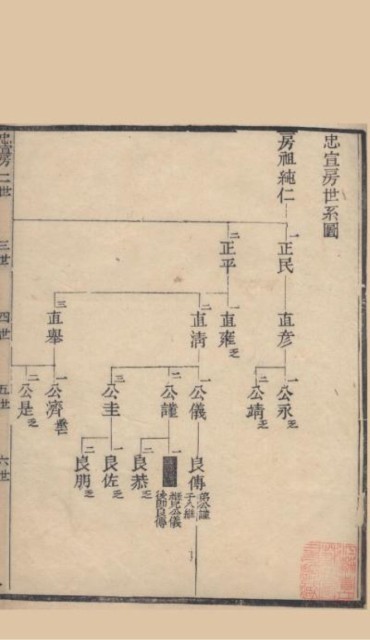 忠宣房世系圖
房祖純仁
忠宣房二世
三世
四世
五世
六世
一 正民
二 正平
直彦
一 直雍 乏
二 直清
三 直舉
一 公永 乏
二 公靖 乏
一 公儀
二 公謹
三 公圭
一 公濟
二 公是 乏
良傳
弟公謹
子入繼
一
繼兄公儀
後即良傳
二 良恭 乏
一 良佐 乏
二 良朋 乏